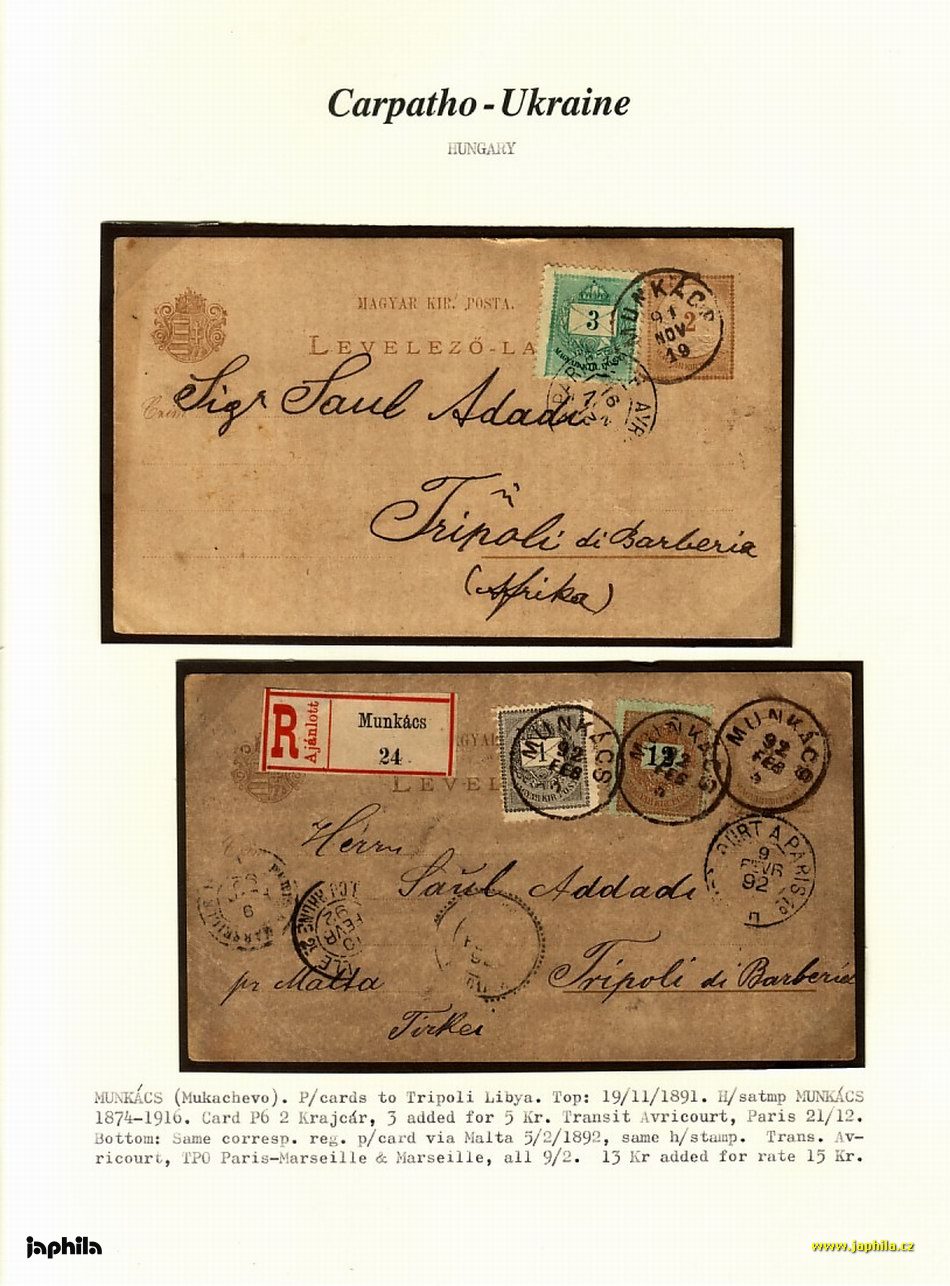 Carpatho - Ukraine
HUNGARY
MAGYAR KIR. POSTA.
LEVELEZŐ-LA
3
2
MUNKÁCS
91
NOV
19
AVR
Sigr Saul Adadi
Tripoli di Barberia
(Afrika)
R
Ajánlott
Munkács
24
MAGYAR
LEVEL
1
MAGYAR KIR. POSTA
MUNKÁCS
92
FEB
5
12
MUNKÁCS
FEB
5
MUNKÁCS
92
FEB
5
Herrn
Saül Addadi
COURT A PARIS
9
FEVR
92
PARIS A MARSEILLE
9
RHONE
10
FEVR
92
pr Malta
Tripoli di Barberia
Tirkei
MUNKÁCS (Mukachevo). P/cards to Tripoli Libya. Top: 19/11/1891. H/satmp MUNKÁCS
1874-1916. Card P6 2 Krajcár, 3 added for 5 Kr. Transit Avricourt, Paris 21/12.
Bottom: Same corresp. reg. p/card via Malta 5/2/1892, same h/stamp. Trans. Av-
ricourt, TPO Paris-Marseille & Marseille, all 9/2. 13 Kr added for rate 15 Kr.
japhila
www.japhila.cz